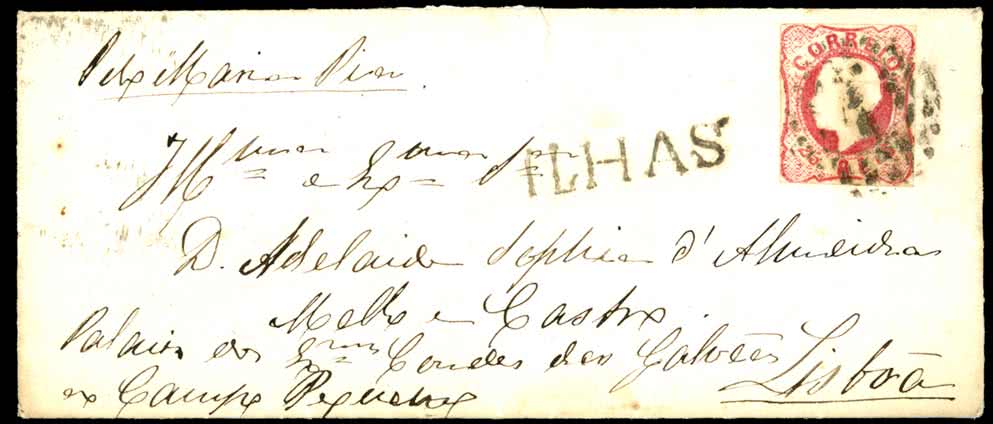 Pelo Maria Pia
CORREIO
ILHAS
Ill.ma e Ex.ma Snr.a
D. Adelaide Sophia d'Almeida
Mello e Castro.
Palacio dos Ex.mos Condes das Galvêas
ao Campo Pequeno
Lisboa